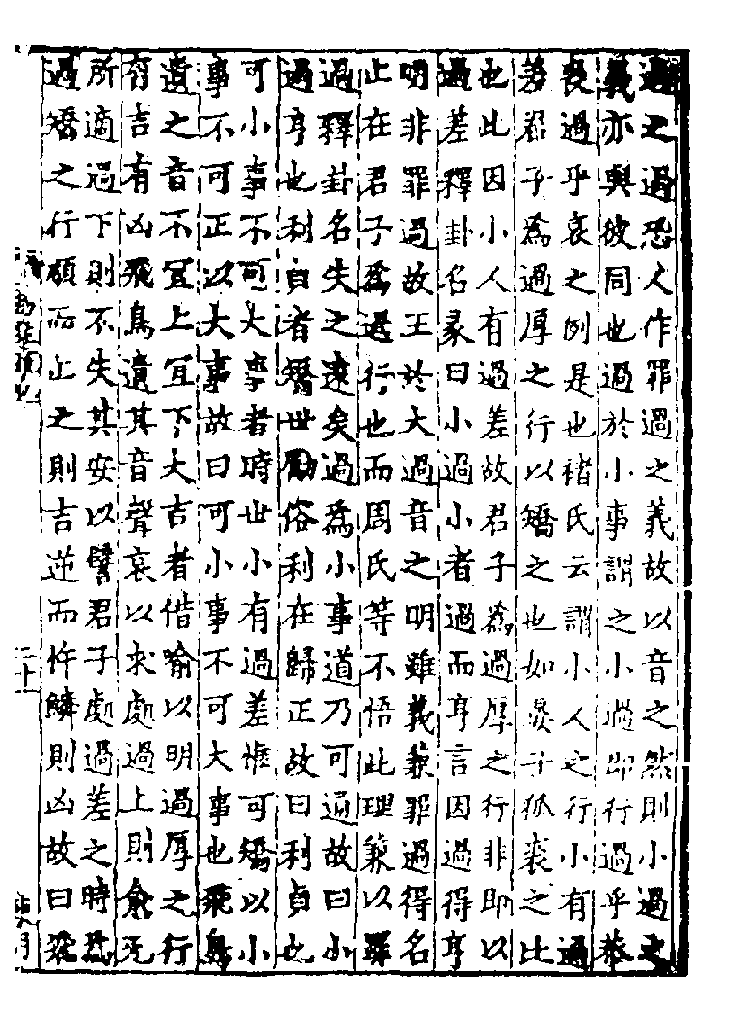 過之過恐人作罪過之義故以音之然則小過之
義亦與彼同也過於小事謂之小過即行過乎恭
喪過乎哀之例是也褚氏云謂小人之行小有過
差君子為過厚之行以矯之也如晏子狐裘之比
也此因小人有過差故君子為過厚之行非即以
過差釋卦名彖曰小過小者過而亨言因過得亨
明非罪過故王於大過音之明雖義兼罪過得名
止在君子為過行也而周氏等不悟此理兼以罪
過釋卦名失之遠矣過為小事道乃可通故曰小
過亨也利貞者矯世勵俗利在歸正故曰利貞也
可小事不可大事者時世小有過差惟可矯以小
事不可正以大事故曰可小事不可大事也飛鳥
遺之音不冝上冝下大吉者借喻以明過厚之行
有吉有凶飛鳥遺其音聲哀以求處過上則愈无
所適過下則不失其安以譬君子處過差之時為
過矯之行順而止之則吉逆而忤鱗則凶故曰飛